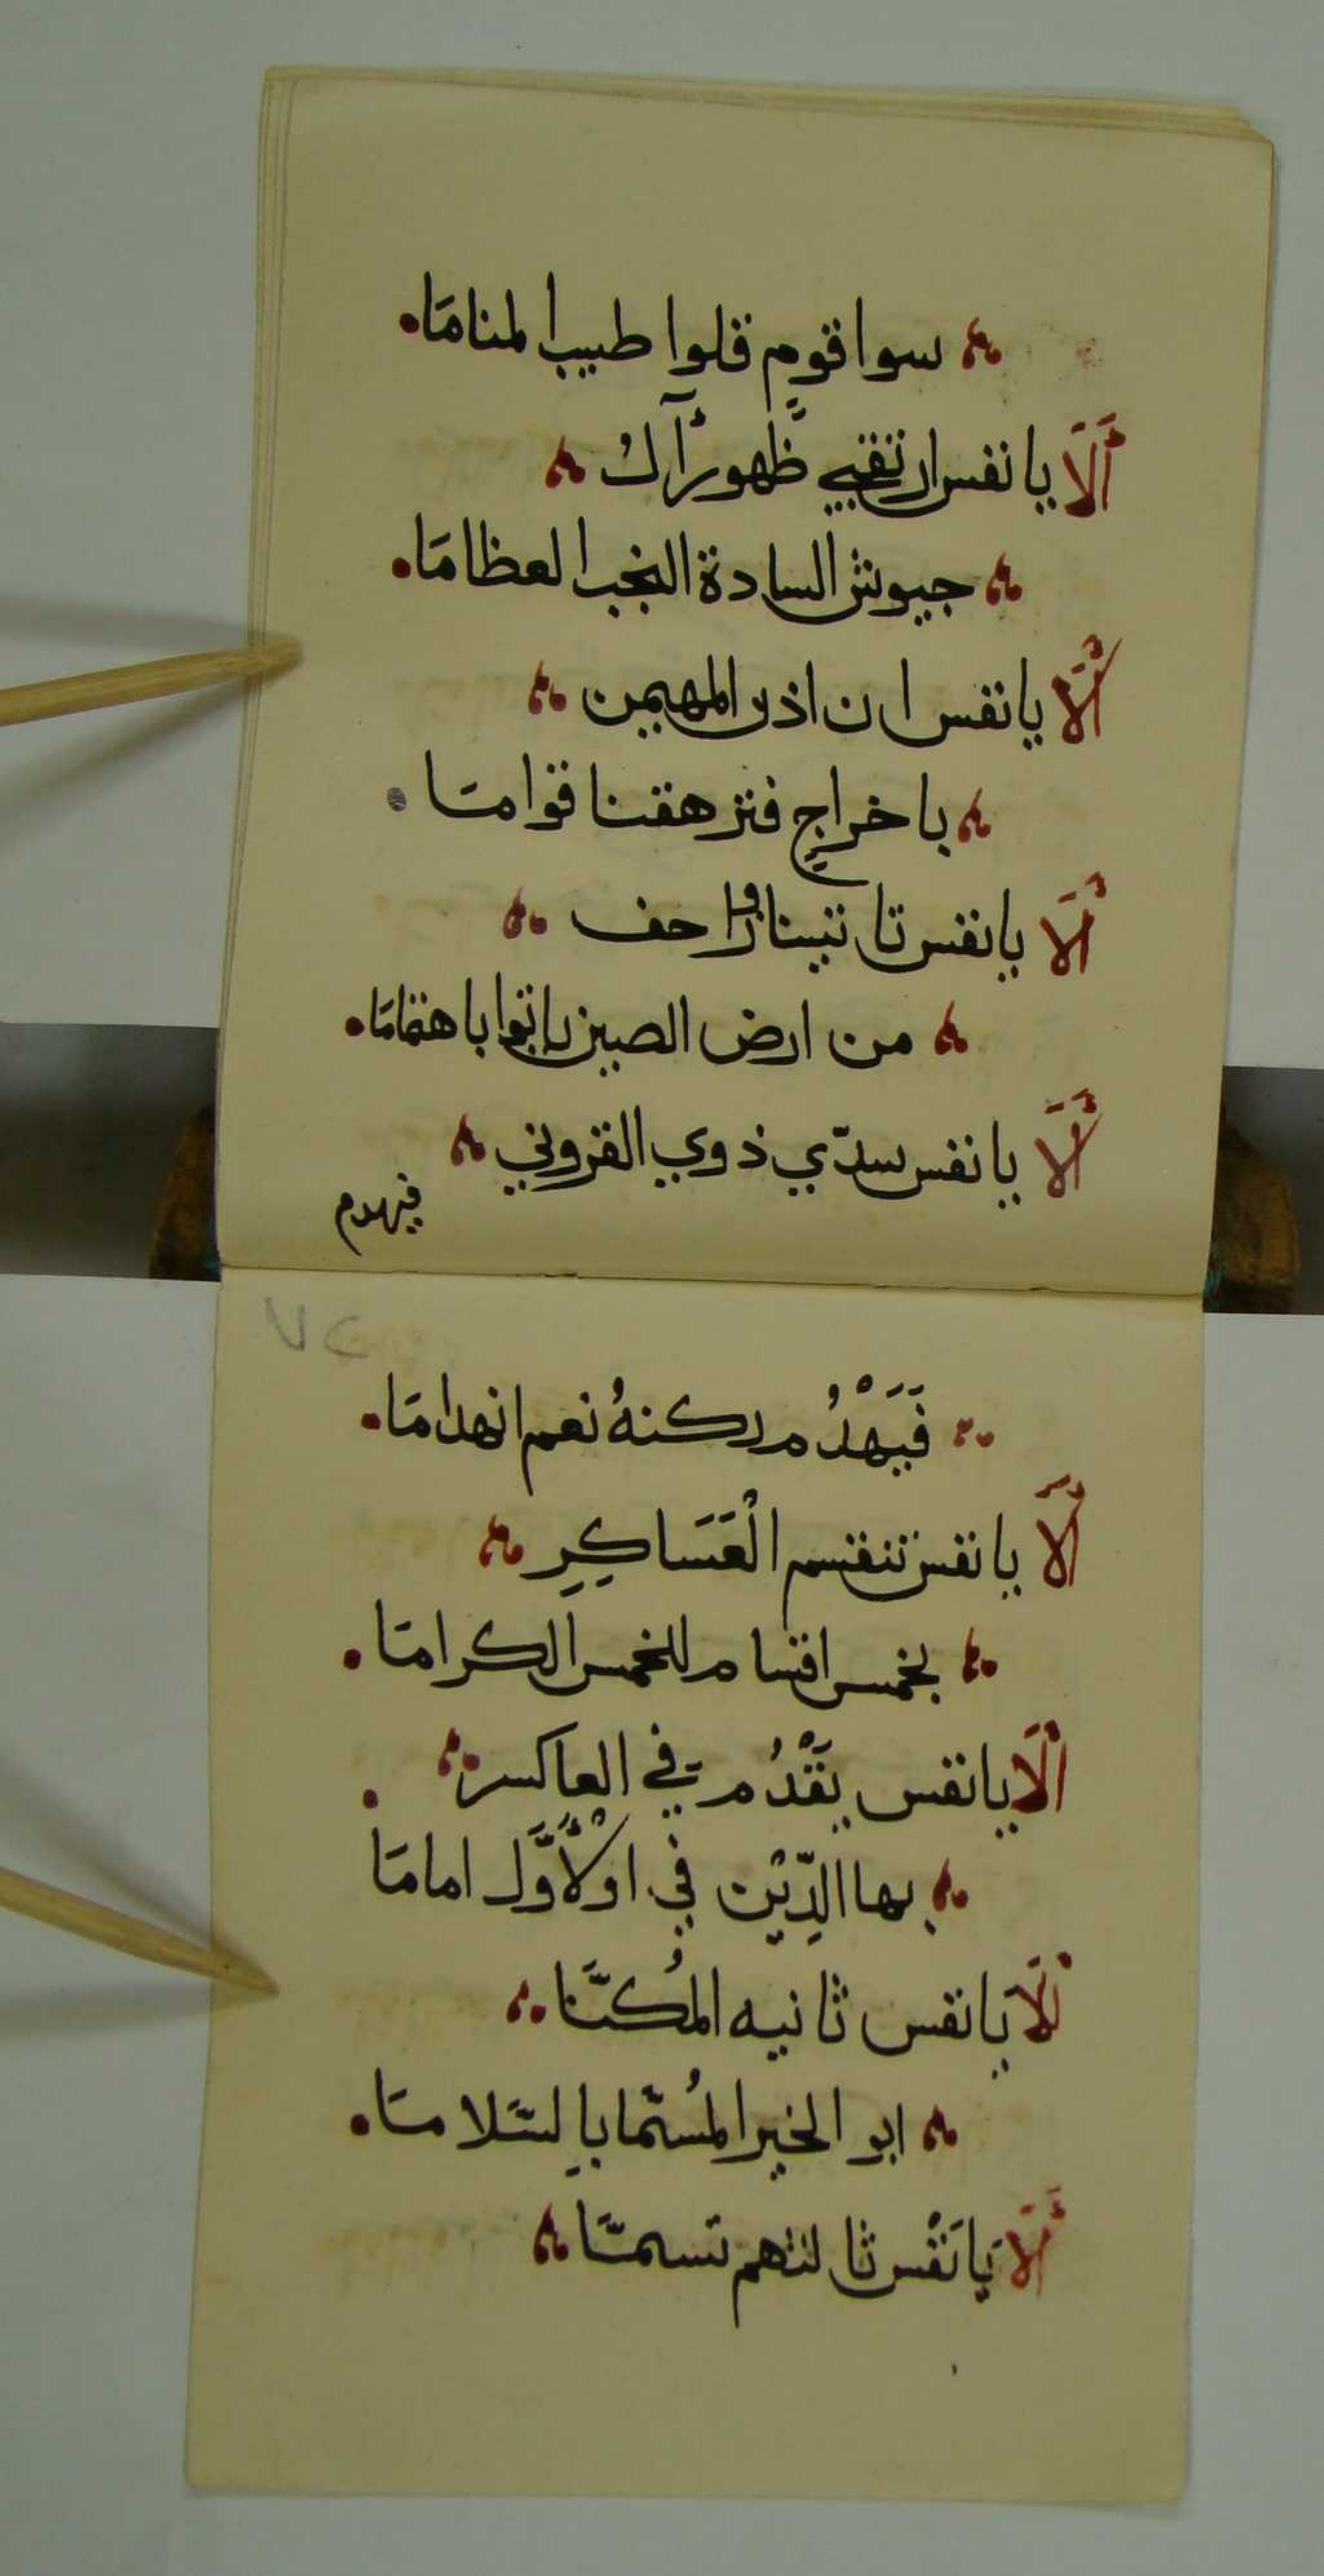 سوا قومٍ قلوا طيب المنامَا
أَلَا يا نفس ارتقبي ظهورآ
جيوش السادة النجب العظامَا
أَلَا يا نفس ان اذن المهيمن
باخراجٍ فتزهقنا قوامَا
أَلَا يا نفس تاتينا زواحف
من ارض الصين ياتوا باهتمامَا
أَلَا يا نفس سدّي ذوي القروني
فيهدم
٧٥
فَيَهْدُم ركنهُ نعم انهدامَا
أَلَا يا نفس تنقسم الْعَسَاكِرِ
بخمس اقسام للخمس الكرامَا
أَلَا يا نفس يَقْدُم في العاكسر
بها الدِّيْن في اوْلَأَوَّل امامَا
أَلَا يَا نفس ثانيه المُكنَّا
ابو الخير المُسمَّا بالسَلامَا
أَلَا يَا نَفْس ثالثهم تسمَّا